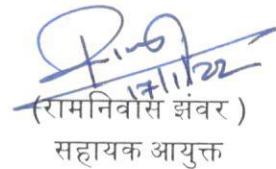 17/1/22
(रामनिवास झंवर )
सहायक आयुक्त